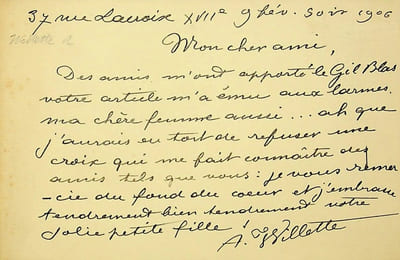 37 rue Lacroix XVIIe 9 fév. soir 1906
Willette
Mon cher ami,
Des amis m'ont apporté le Gil Blas
votre article m'a ému aux larmes.
ma chère femme aussi... ah que
j'aurais eu tort de refuser une
croix qui me fait connaître des
amis tels que vous: je vous remer
-cie du fond du coeur et j'embrasse
tendrement bien tendrement votre
jolie petite fille!
A. Willette